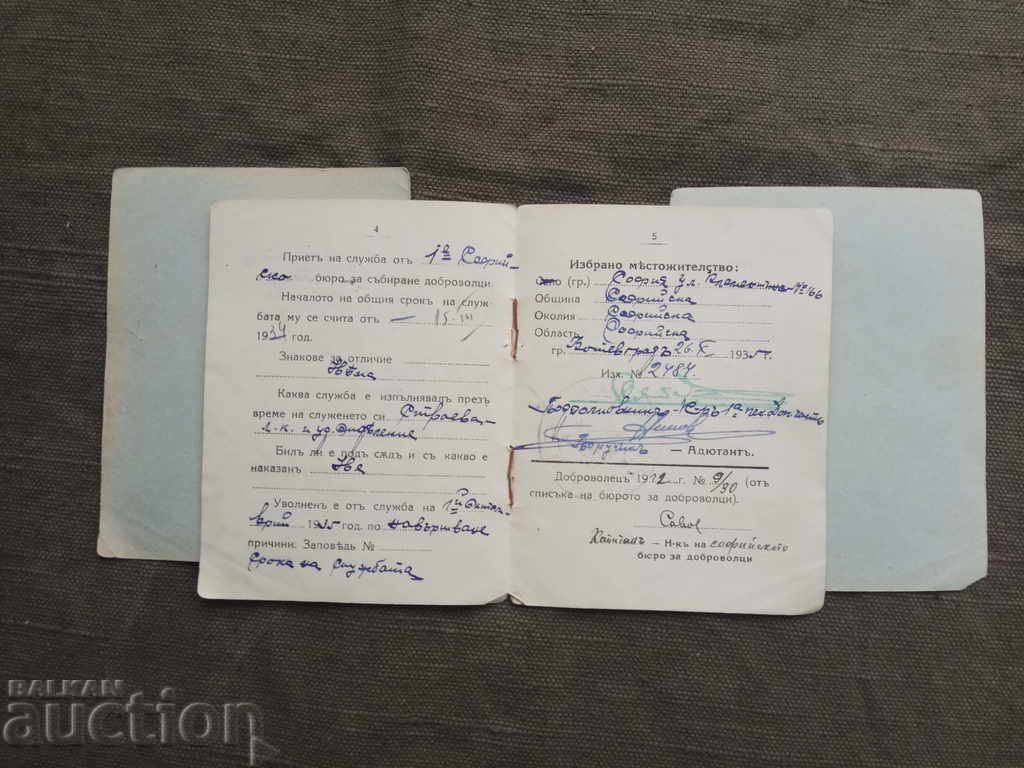 4
Приетъ на служба отъ 1во Софий-
ско бюро за събиране доброволци
Началото на общия срокъ на служ-
бата му се счита отъ — 15.
1934 год.
Знакове за отличие
Нѣма
Каква служба е изпълнявалъ презъ
време на служенето си Строева,
л.к. и уд. отдѣление
Билъ ли е подъ сѫдъ и съ какво е
наказанъ Не
Уволненъ е отъ служба на 1й Октом-
врий 1935 год. по навършване
причини: Заповѣдь №
срока на службата
5
Избрано мѣстожителство:
Село (гр.) София ул. №166
Община Софийска
Околия Софийска
Область Софийска
гр. Ботевградъ 26.X 1935 г.
Изх. № 2484.
Подполковникъ К-ръ 1а
Поручикъ — Адютантъ.
Доброволецъ 1932 г. № 9/30 (отъ
списъка на бюрото за доброволци).
Савов
Капитанъ — Н-къ на софийското
бюро за доброволци
BALKAN
auction